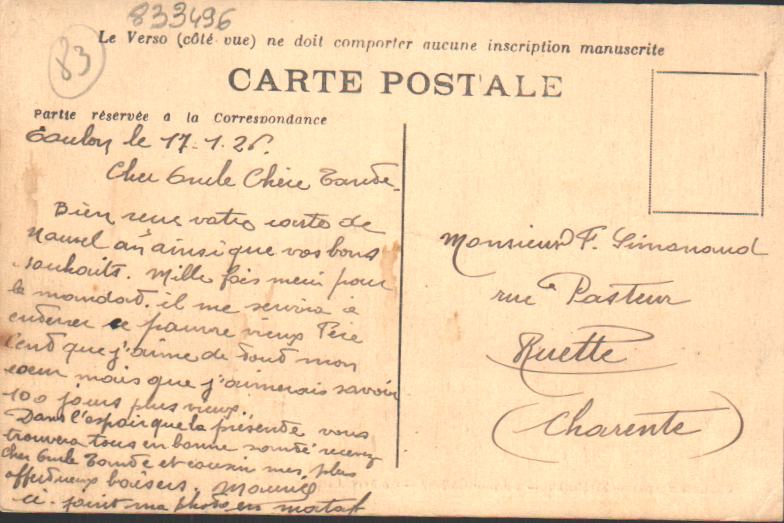 833496
83
Le Verso (côté vue) ne doit comporter aucune inscription manuscrite
CARTE POSTALE
Partie réservée a la Correspondance
Toulon le 17-1-26.
Cher Oncle Chère Tante.
Bien reçu votre carte de
nouvel an ainsi que vos bons
souhaits. Mille fois merci pour
le mandat. il me servira à
enterrer ce pauvre vieux Père
Cent que j'aime de tout mon
coeur mais que j'aimerais savoir
100 jours plus vieux.
Dans l'espoir que la présente vous
trouvera tous en bonne santé recevez
cher Oncle Tante et cousin mes plus
affectueux baisers. Maurice
ci-joint ma photo en mataf
Monsieur F. Simonaud
rue Pasteur
Ruelle
(Charente)